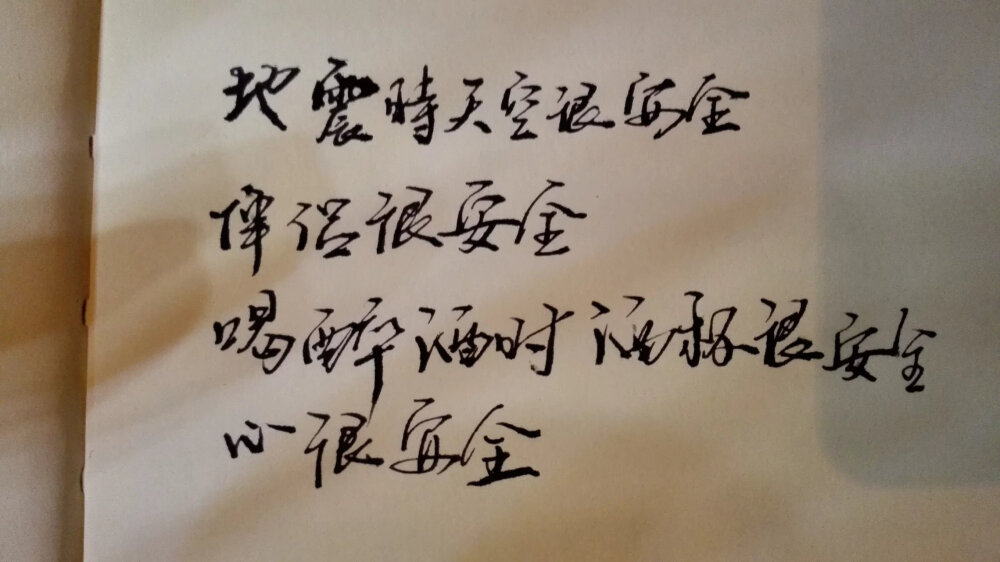 地震時天空很安全
伴侣很安全
喝醉酒时酒杯很安全
心很安全